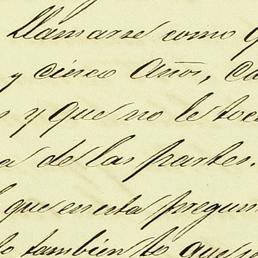 llamarse como
y cinco años,
y que no le toca
de las partes.
que en esta pregun
también lo que